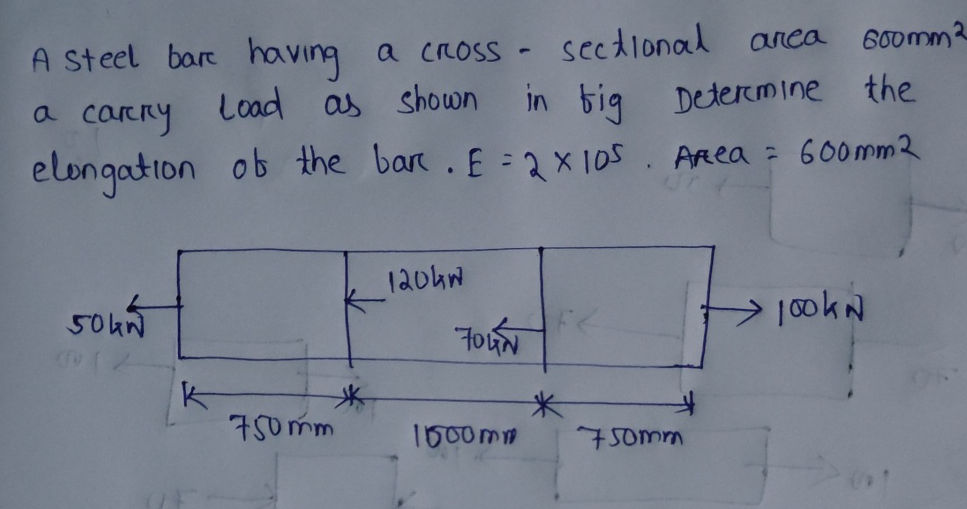 A steel bar having a cross - sectional area 600mm²
a carry load as shown in fig Determine the
elongation of the bar . E = 2 × 10⁵ . Area = 600mm²
120kN
50kN
70kN
100kN
750mm
1000mm
750mm